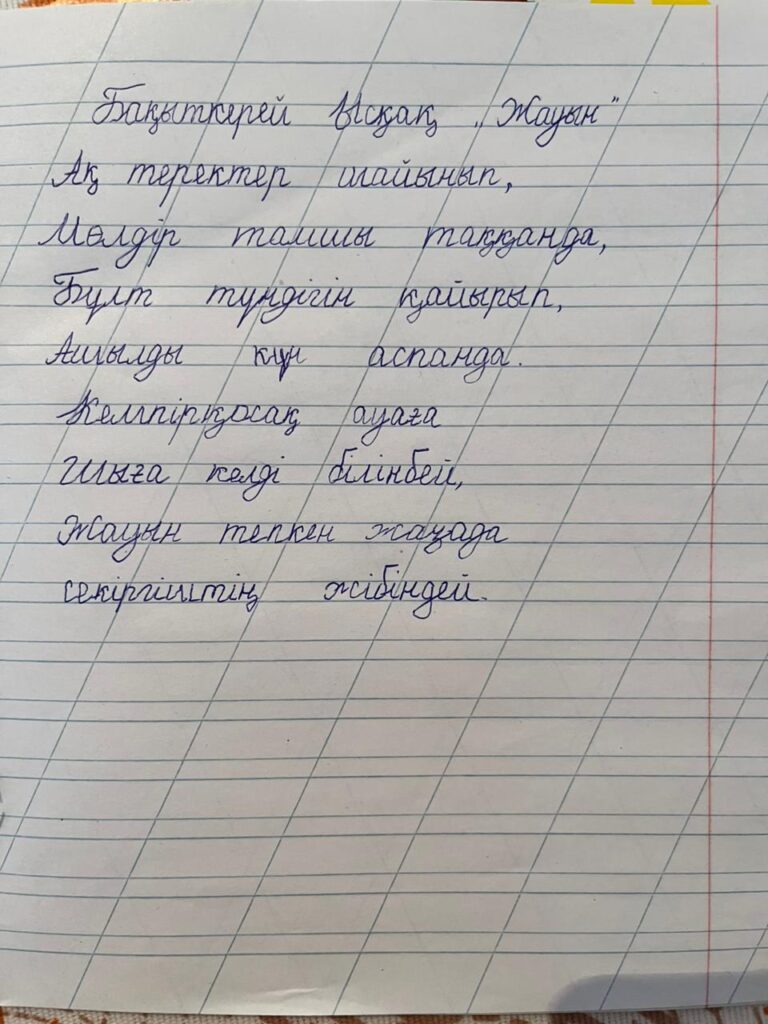 Бақыткерей Ысқақ „Жауын"
Ақ теректер шайынып,
Мөлдір тамшы таққанда,
Бұлт түндігін қайырып,
Ашылды күн аспанда.
Кемпірқосақ ауаға
Шыға келді білінбей,
Жауын тепкен жаңада
секіргіштің жібіндей.